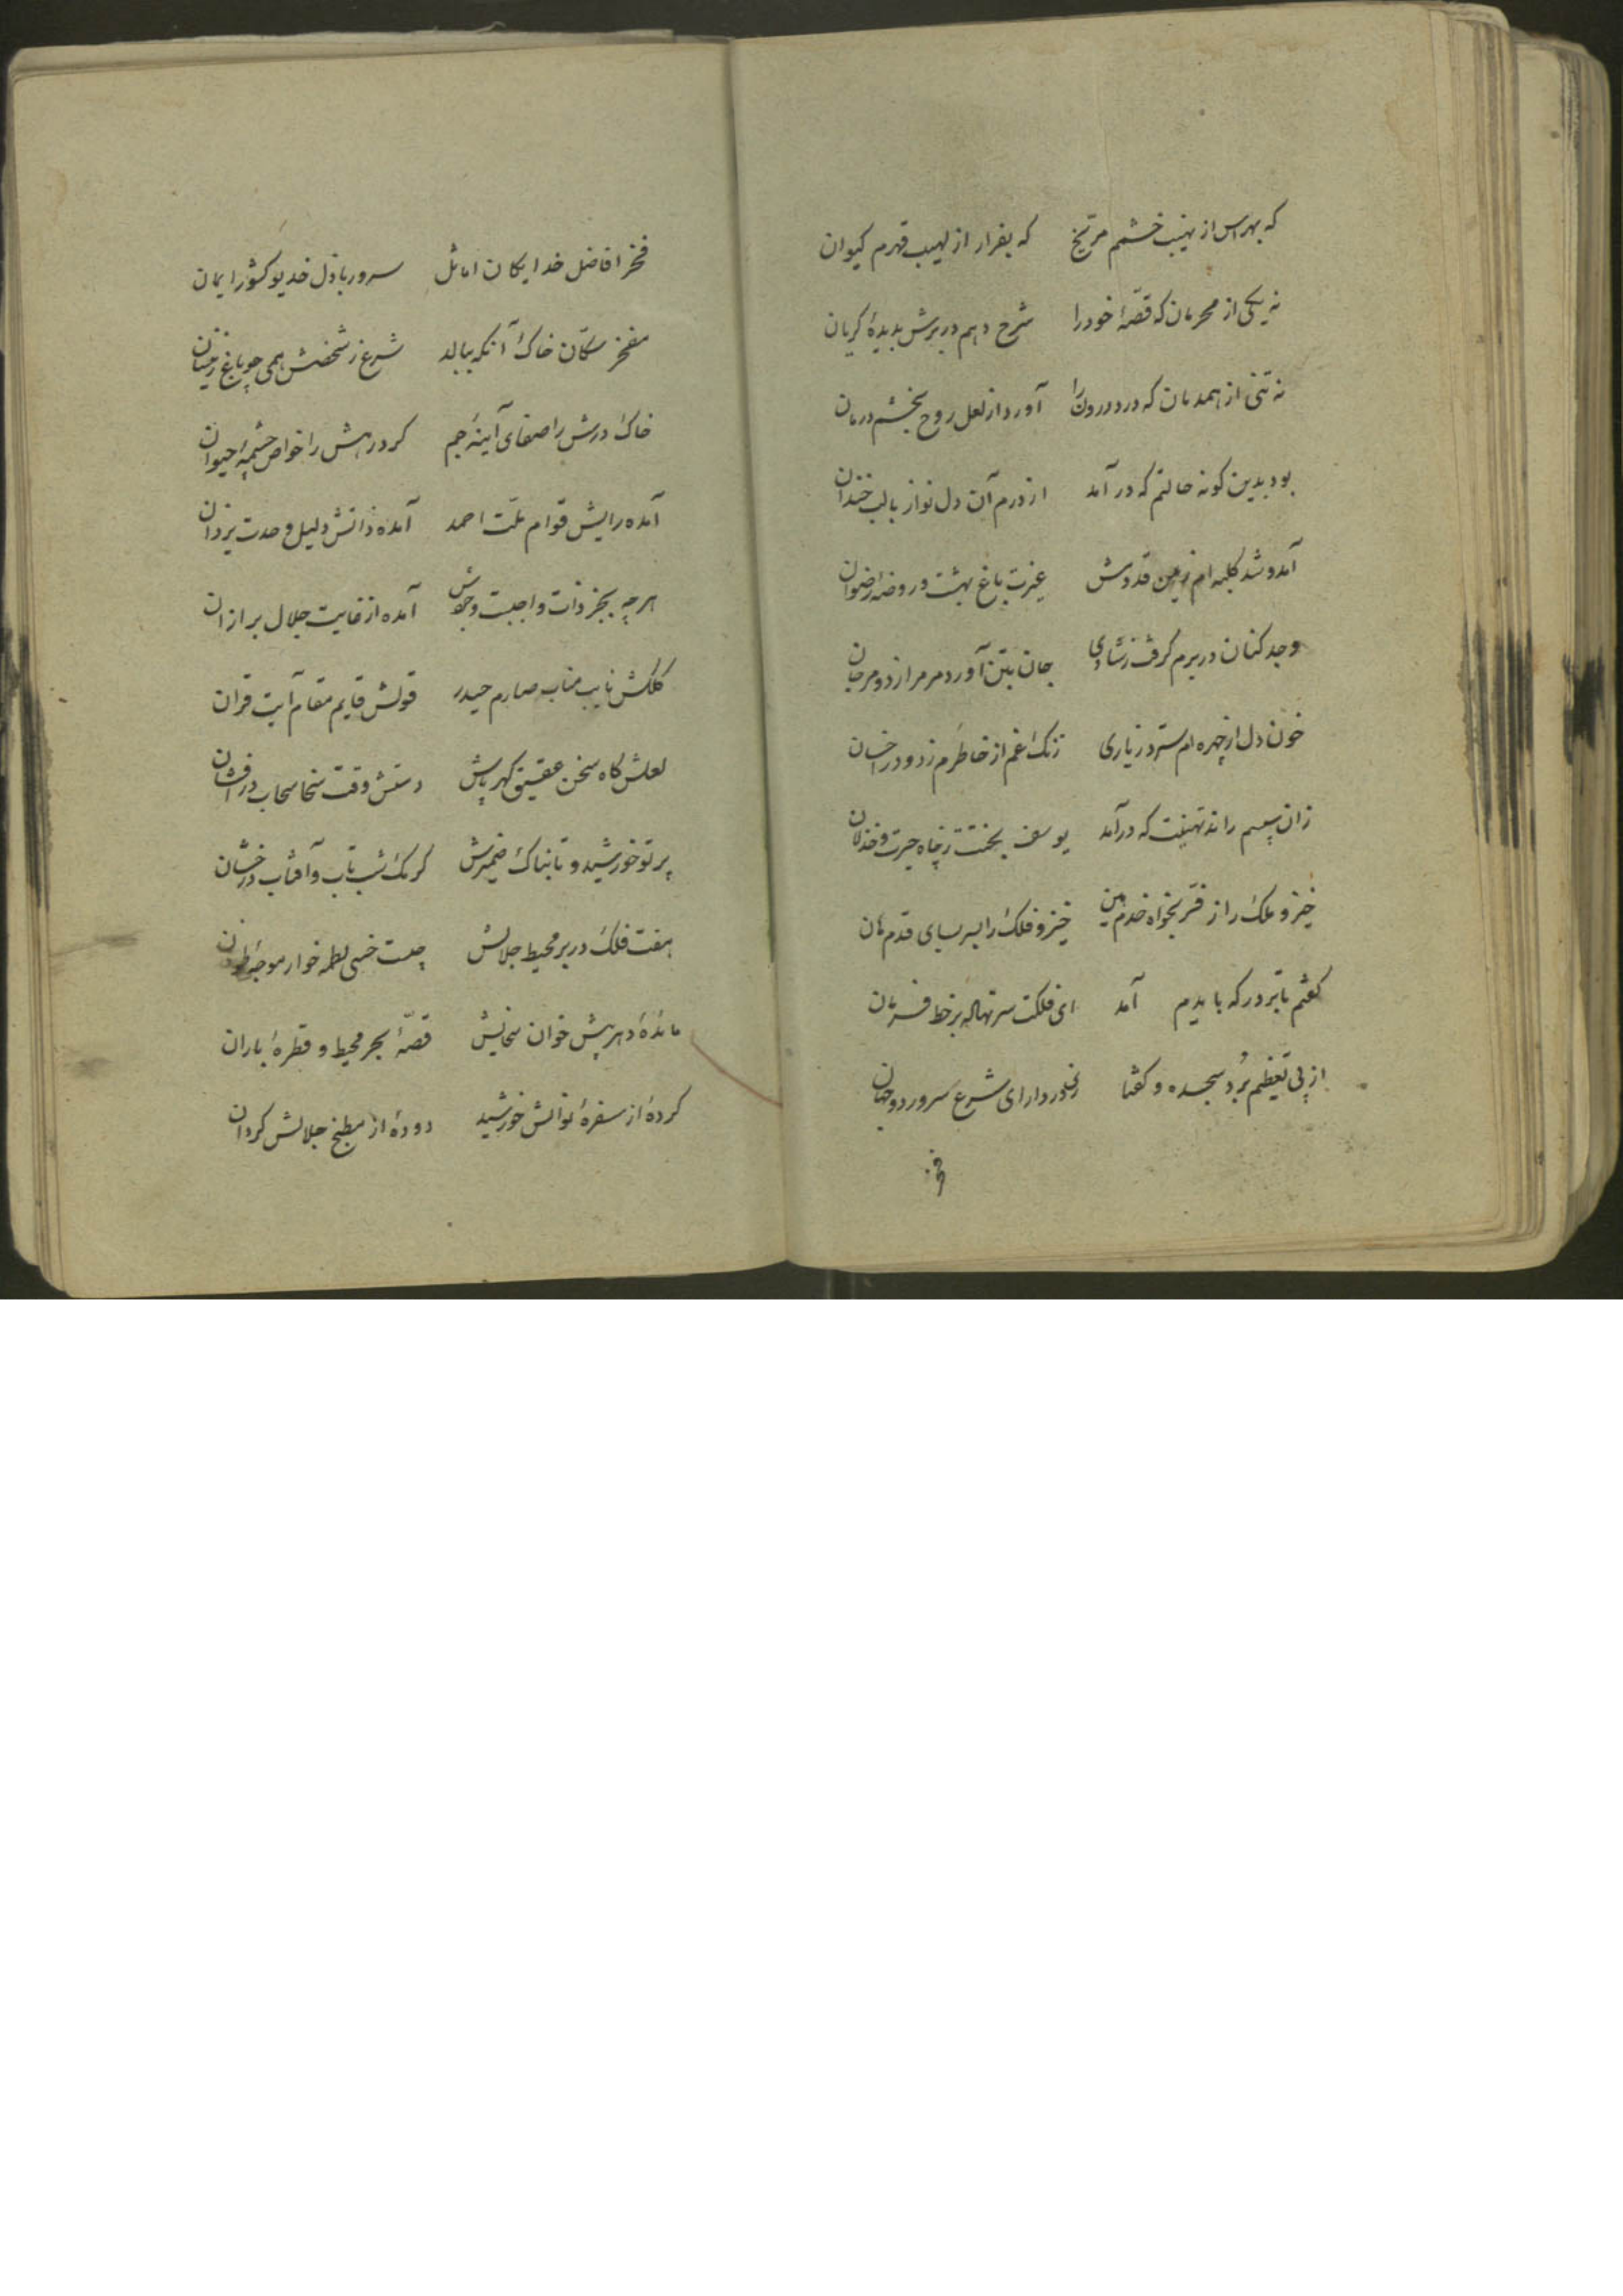 که بهراس از نهیب خشم مرّیخ که بفرار از لهیب قهرم کیوان
نه یکی از محرمان که قصّهٔ خود را شرح دهم در برش بدیدهٔ کریان
نه تنی از همدمان که درد درون را آورد از لعل روح بخشم درمان
بود بدین کونه حالتم که در آمد از درم آن دل نواز با لب خندان
آمد و شد کلبه ام ز یمن قدومش غیرت باغ بهشت و روضه رضوان
وجد کنان در برم کرفت ز شادی جان بتن آورد مر مرا ز دو مرجان
خون دل از چهره ام سترد ز یاری زنک غم از خاطرم زدود ز احسان
زان سپسم راند تهنیت که درآمد یوسف بختت ز چاه حیرت و خذلان
خیز و ملک را ز فرّ بخواه خدم هین خیز و فلک را بسر بسای قدم هان
کفتم با تبر در که با بدیم آمد ای فلکت سر نهاله بر خط فرمان
از پی تعظیم برد سجده و کفتا در دارای شرع سرور دو جهان
فخر
فخر افاضل خدایکان اماثل سرور باذل خدیو کشور ایمان
مفخر سکّان خاک آنکه ببالد شرع ز شخصش همی چو باغ ز نیسان
خاک درش را صفای آینهٔ جم کرد رهش را خواص چشمهٔ حیوان
آمده رایش قوام ملّت احمد آمده ذاتش دلیل وحدت یزدان
هر چه بجز ذات واجبست وجودش آمده از غایت جلال بر از ان
کلکش نایب مناب صارم حیدر قولش قایم مقام آیت قران
لعلش کاه سخن عقیق کهر پاش دستش وقت سخا سحاب درافشان
پرتو خورشید و تابناک ضمیرش کرمک شب تاب و آفتاب درخشان
هفت فلک در بر محیط جلالش چیست خسی لطمه خوار موجهٔ طوفان
مائدهٔ دهر پیش خوان سخایش قصّهٔ بحر محیط و قطرهٔ باران
کردهٔ از سفرهٔ نوالش خورشید دودهٔ از مطبخ جلالش کردان